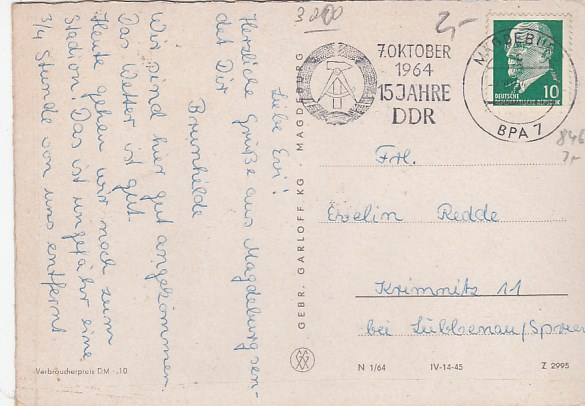 Liebe Evi!
Herzliche Grüße aus Magdeburg sen-
det Dir
Brunhilde
Wir sind hier gut angekommen.
Das Wetter ist gut.
Heute gehen wir noch zum
Stadion. Das ist ungefähr eine
3/4 Stunde von uns entfernt
Verbraucherpreis DM -,10
GEBR. GARLOFF KG · MAGDEBURG
7. OKTOBER
1964
15 JAHRE
DDR
MAGDEBURG
BPA 7
DEUTSCHE
DEMOKRATISCHE REPUBLIK
10
2,-
846
Frl.
Evelin Redde
Krimnitz 11
bei Lübbenau/Spree
N 1/64 IV-14-45 Z 2995